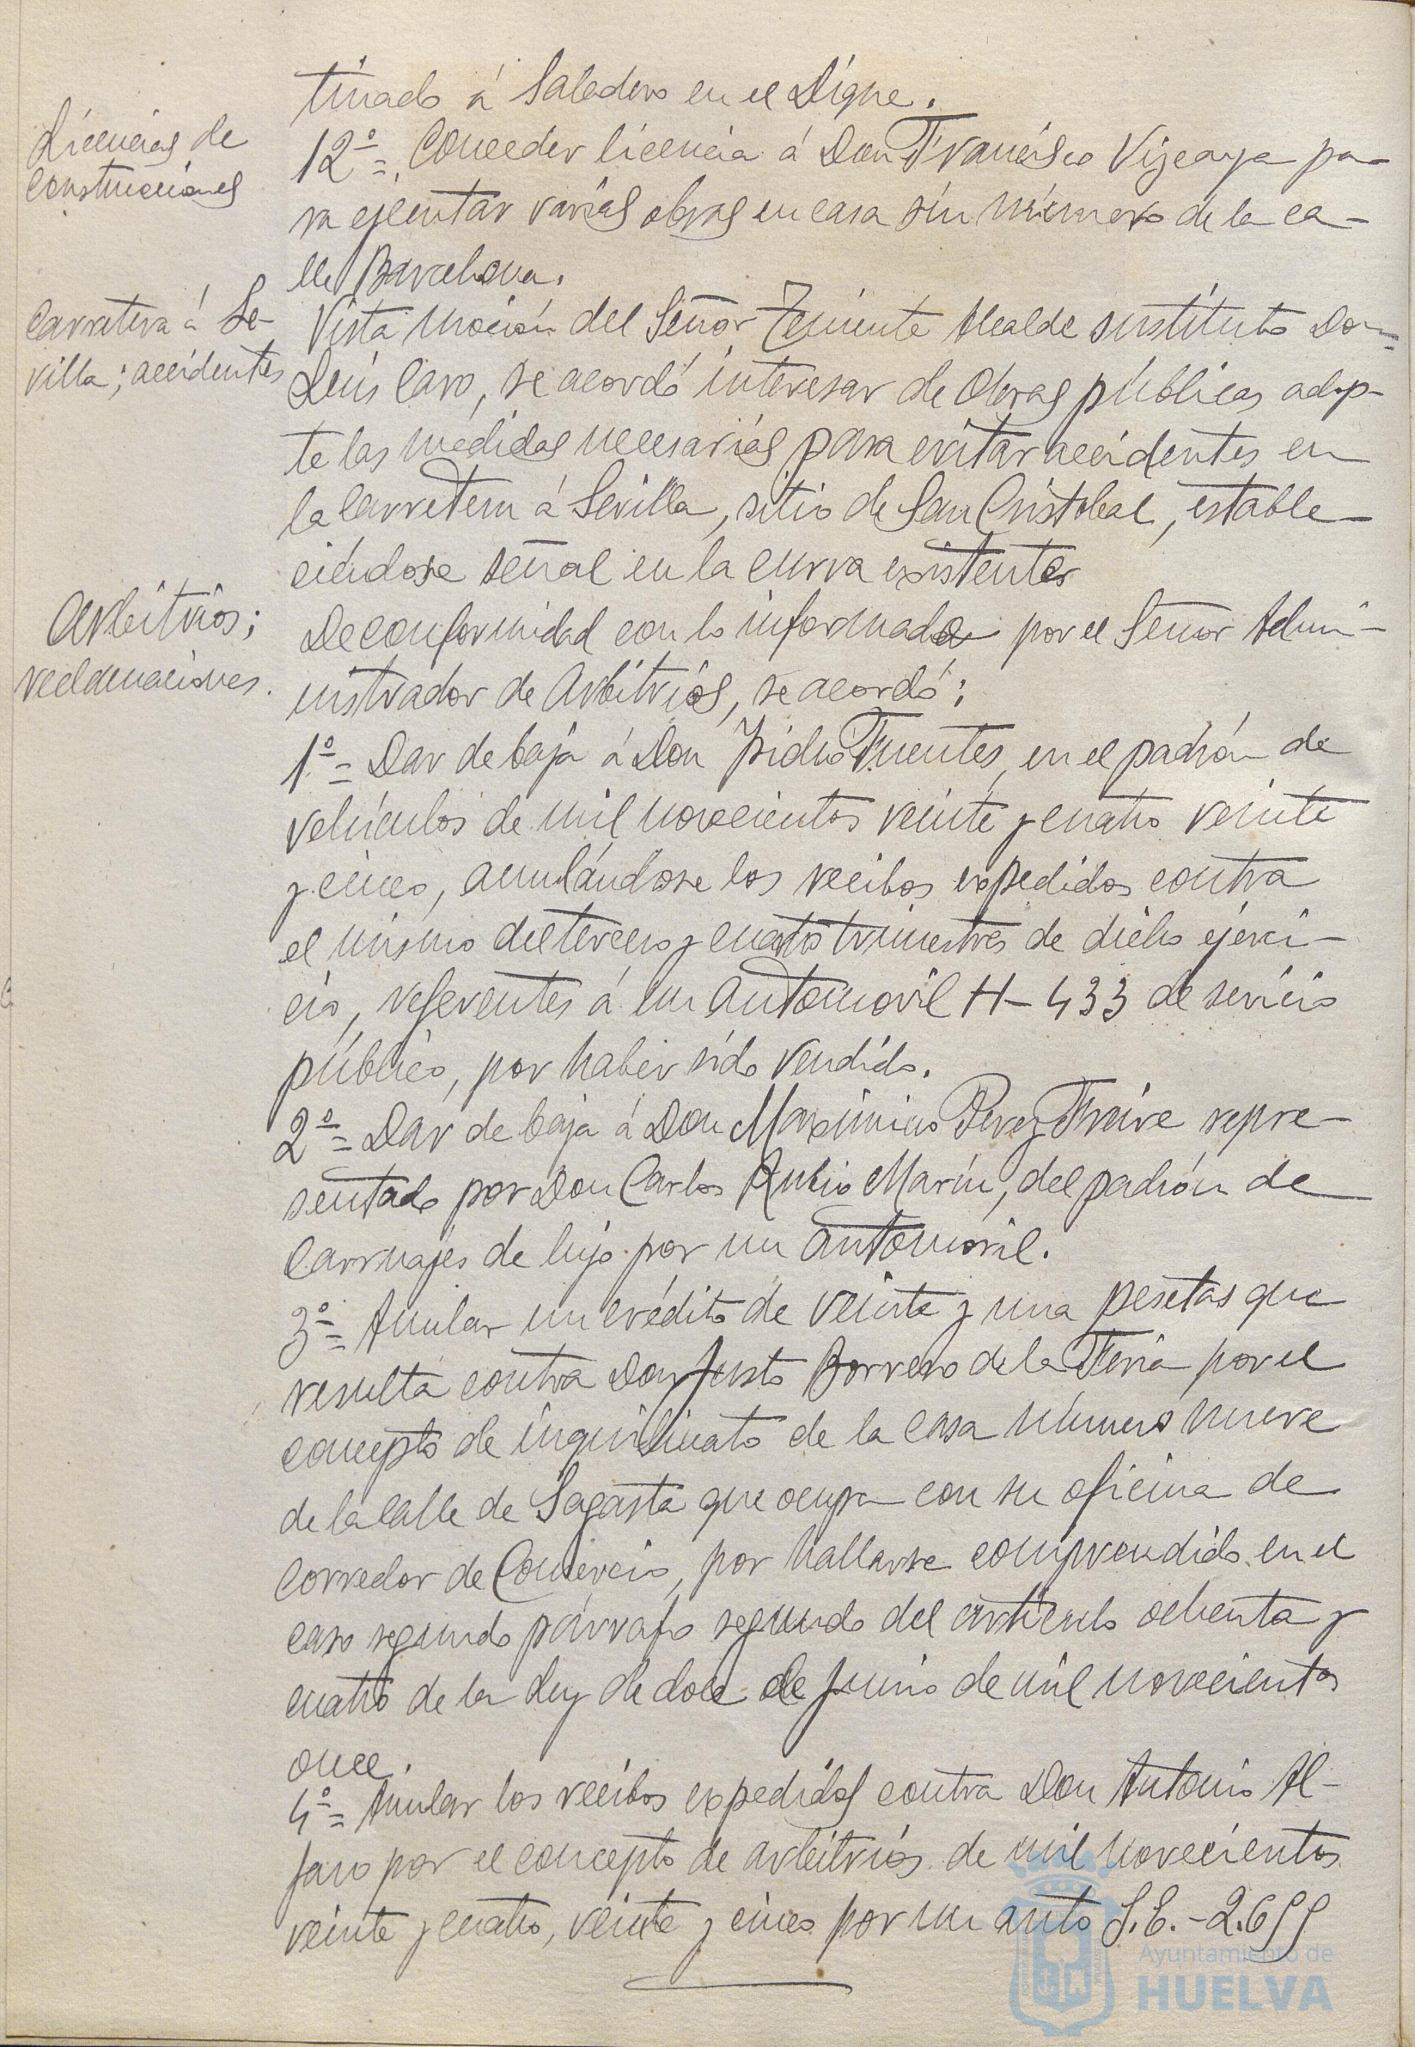 tinado á Saladero en el Dique.
Licencias de
construcciones
12º=. Conceder licencia á Don Francisco Vizcaya pa-
ra ejecutar varias obras en casa sin número de la ca-
lle Barcelona.
Carretera á Se-
villa; accidentes
Vista moción del Señor Teniente Alcalde sustituto Don
Luis Caro, se acordó interesar de Obras públicas adop-
te las medidas necesarias para evitar accidentes en
la Carretera á Sevilla, sitio de San Cristobal, estable-
ciéndose señal en la curva existente
Arbitrios;
reclamaciones.
De conformidad con lo informado por el Señor Admi-
nistrador de Arbitrios, se acordó:
1º= Dar de baja á Don Isidro Fuentes, en el padrón de
vehículos de mil novecientos veinte y cuatro veinte
y cinco, anulándose los recibos expedidos contra
el mismo del tercero y cuarto trimestres de dicho ejerci-
cio, referentes á un automovil H-433 de servicio
público, por haber sido vendido.
2º= Dar de baja á Don Maximino Perez Freire repre-
sentado por Don Carlos Rubio Marín, del padrón de
Carruajes de lujo por un automóvil.
3º= Anular un crédito de veinte y una pesetas que
resulta contra Don Justo Borrero de la Feria por el
concepto de inquilinato de la casa número nueve
de la calle de Sagasta que ocupa con su oficina de
Corredor de Comercio, por hallarse comprendido en el
caso segundo párrafo segundo del artículo ochenta y
cuatro de la Ley de doce de Junio de mil novecientos
once.
4º= Anular los recibos expedidos contra Don Antonio Al-
faro por el concepto de arbitrios de mil novecientos
veinte y cuatro, veinte y cinco por un auto S.E.-2.699
Ayuntamiento de
HUELVA